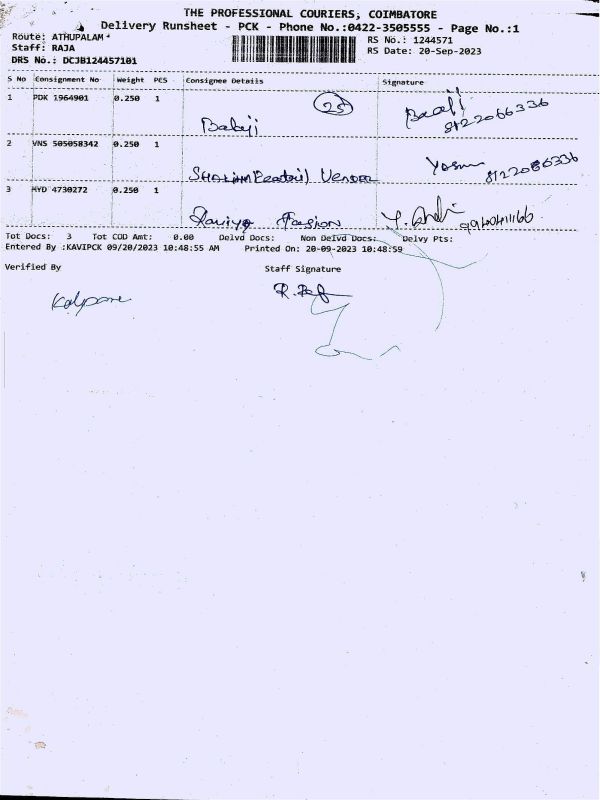 THE PROFESSIONAL COURIERS, COIMBATORE
Delivery Runsheet - PCK - Phone No.:0422-3505555 - Page No.:1
Route: ATHUPALAM
RS No.: 1244571
Staff: RAJA
RS Date: 20-Sep-2023
DRS No.: DCJB124457101
S No Consignment No Weight PCS Consignee Details Signature
1 PDK 1964901 0.250 1 25
Babyji 8122066336
2 VNS 505058342 0.250 1
Vendor 8122066336
3 HYD 4730272 0.250 1
9940411166
Tot Docs: 3 Tot COD Amt: 0.00 Delvd Docs: Non Delvd Docs: Delvy Pts:
Entered By :KAVIPCK 09/20/2023 10:48:55 AM Printed On: 20-09-2023 10:48:59
Verified By Staff Signature